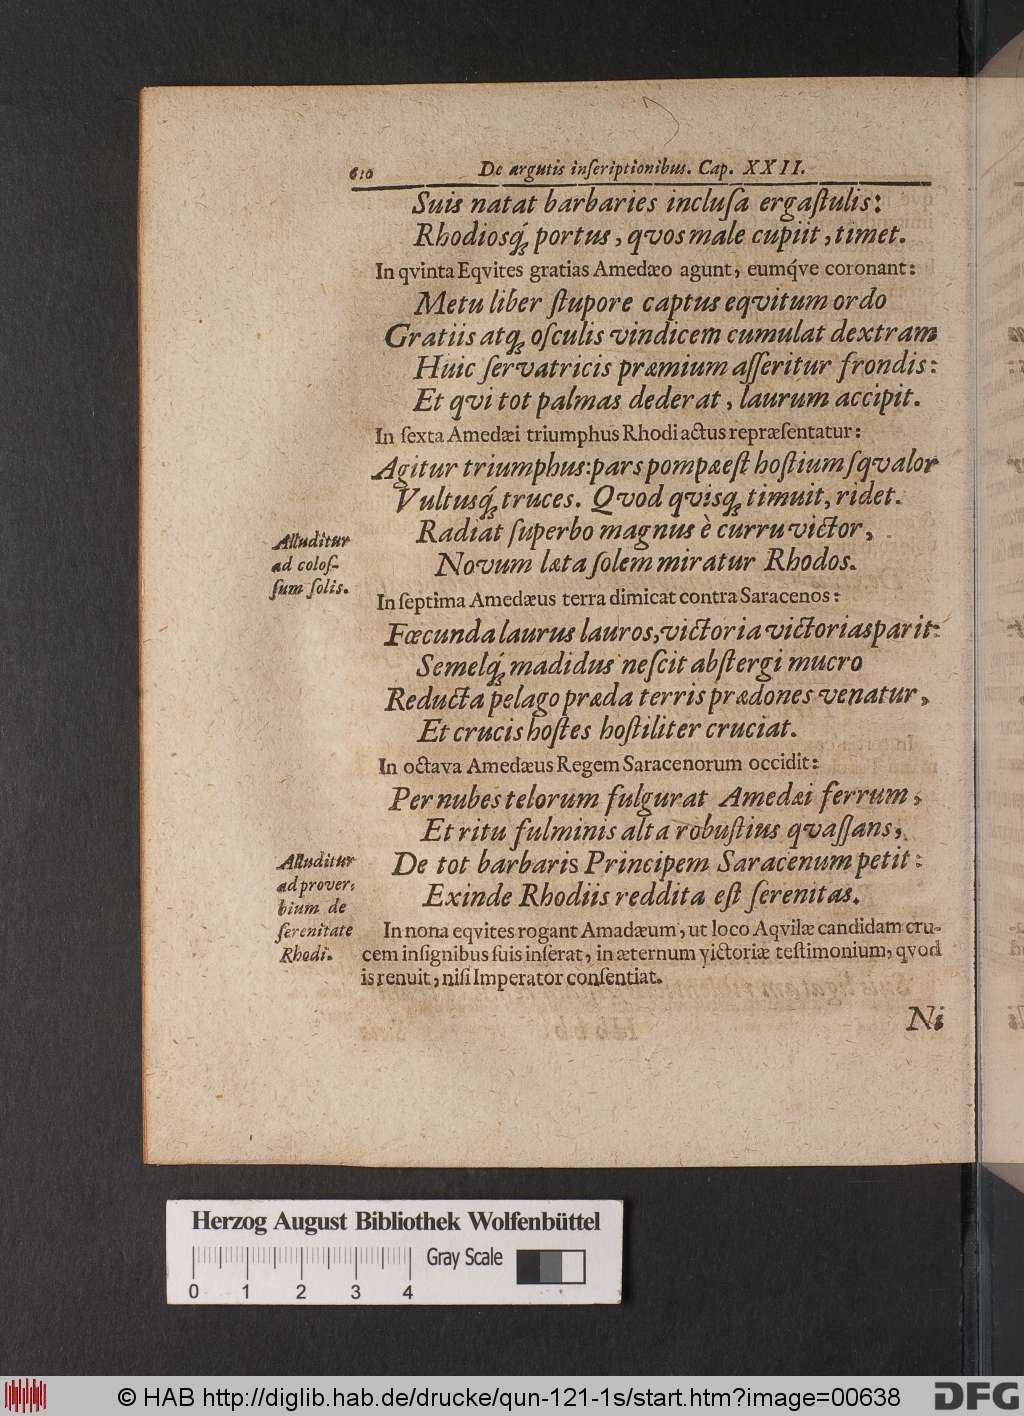 610 De argutis inſcriptionibus. Cap. XXII.
Suis natat barbaries incluſa ergaſtulis:
Rhodiosq́; portus, qvos male cupiit, timet.
In qvinta Eqvites gratias Amedæo agunt, eumq́ve coronant:
Metu liber ſtupore captus eqvitum ordo
Gratiis atq; oſculis vindicem cumulat dextram
Huic ſervatricis præmium aſſeritur frondis:
Et qvi tot palmas dederat, laurum accipit.
In ſexta Amedæi triumphus Rhodi actus repræſentatur:
Agitur triumphus: pars pompæ eſt hoſtium ſqvalor
Vultusq́; truces. Qvod qvisq; timuit, ridet.
Radiat ſuperbo magnus è curru victor,
Novum læta ſolem miratur Rhodos.
Alluditur
ad coloſ-
ſum ſolis.
In ſeptima Amedæus terra dimicat contra Saracenos:
Fœcunda laurus lauros, victoria victorias parit:
Semelq́; madidus neſcit abſtergi mucro
Reducta pelago præda terris prædones venatur,
Et crucis hoſtes hoſtiliter cruciat.
In octava Amedæus Regem Saracenorum occidit:
Per nubes telorum fulgurat Amedæi ferrum,
Et ritu fulminis alta robuſtius qvaſſans,
De tot barbaris Principem Saracenum petit:
Exinde Rhodiis reddita eſt ſerenitas.
Alluditur
ad prover-
bium de
ſerenitate
Rhodi.
In nona eqvites rogant Amadæum, ut loco Aqvilæ candidam cru-
cem inſignibus ſuis inſerat, in æternum victoriæ teſtimonium, qvod
is renuit, niſi Imperator conſentiat.
Ni
Herzog August Bibliothek Wolfenbüttel
Gray Scale
0 1 2 3 4
© HAB http://diglib.hab.de/drucke/qun-121-1s/start.htm?image=00638
DFG